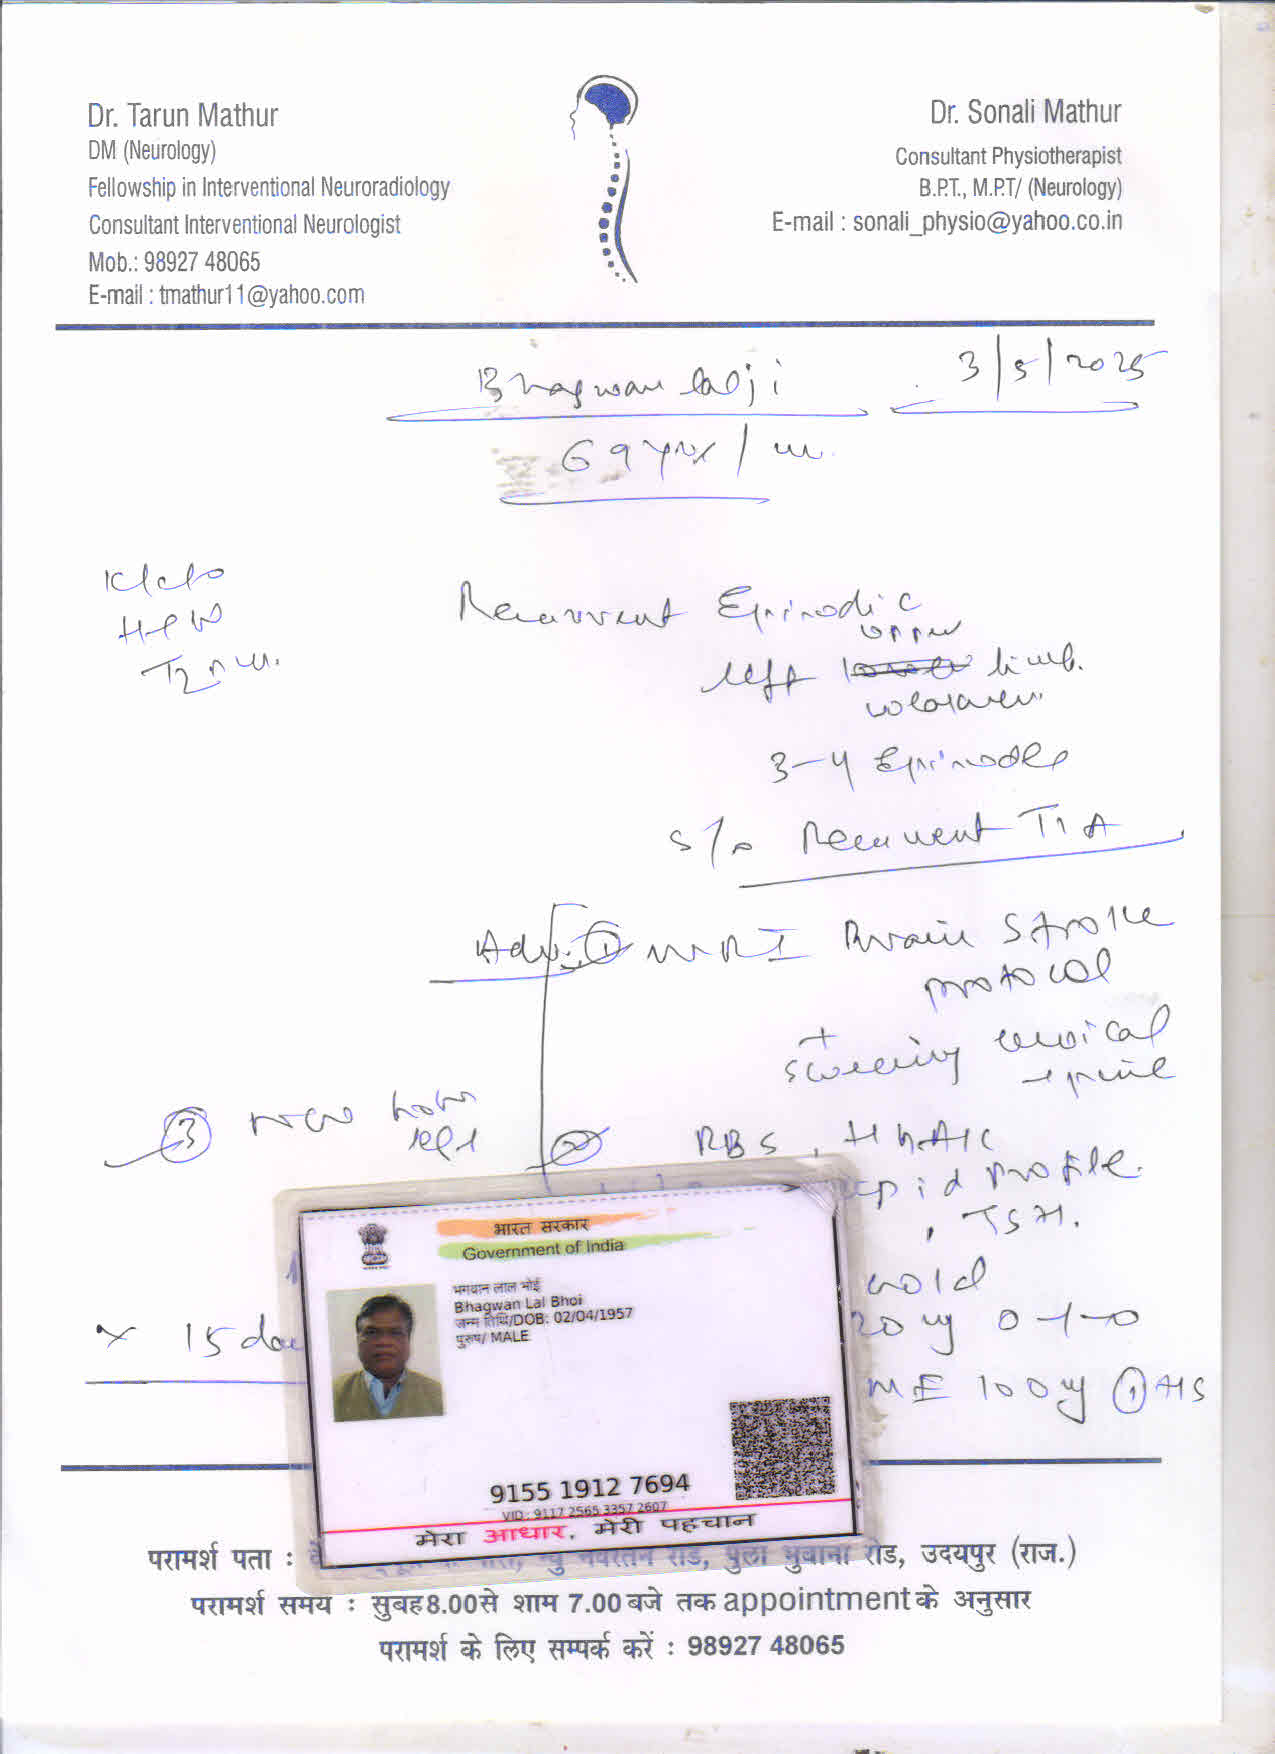 Dr. Tarun Mathur
DM (Neurology)
Fellowship in Interventional Neuroradiology
Consultant Interventional Neurologist
Mob.: 98927 48065
E-mail : tmathur11@yahoo.com
Dr. Sonali Mathur
Consultant Physiotherapist
B.P.T., M.P.T/ (Neurology)
E-mail : sonali_physio@yahoo.co.in
Bhagwan lalji 3/5/2025
69 yrs / m.
K/c/o
T2DM.
Recurrent Episodic
upper
left limb.
3-4 Episodes
s/o Recurrent TIA
Adv. ① MRI Brain Stroke
protocol
+
screening cervical
spine
③
② RBS, HbA1c
lipid profile
, TSH.
20 mg 0-1-0
× 15 da
100 mg ① HS
भारत सरकार
Government of India
भगवान लाल भोई
Bhagwan Lal Bhoi
जन्म तिथि/DOB: 02/04/1957
पुरुष/ MALE
9155 1912 7694
VID : 9117 2565 3357 2607
मेरा आधार, मेरी पहचान
परामर्श पता : रोड, पुला भुवाना रोड, उदयपुर (राज.)
परामर्श समय : सुबह 8.00 से शाम 7.00 बजे तक appointment के अनुसार
परामर्श के लिए सम्पर्क करें : 98927 48065